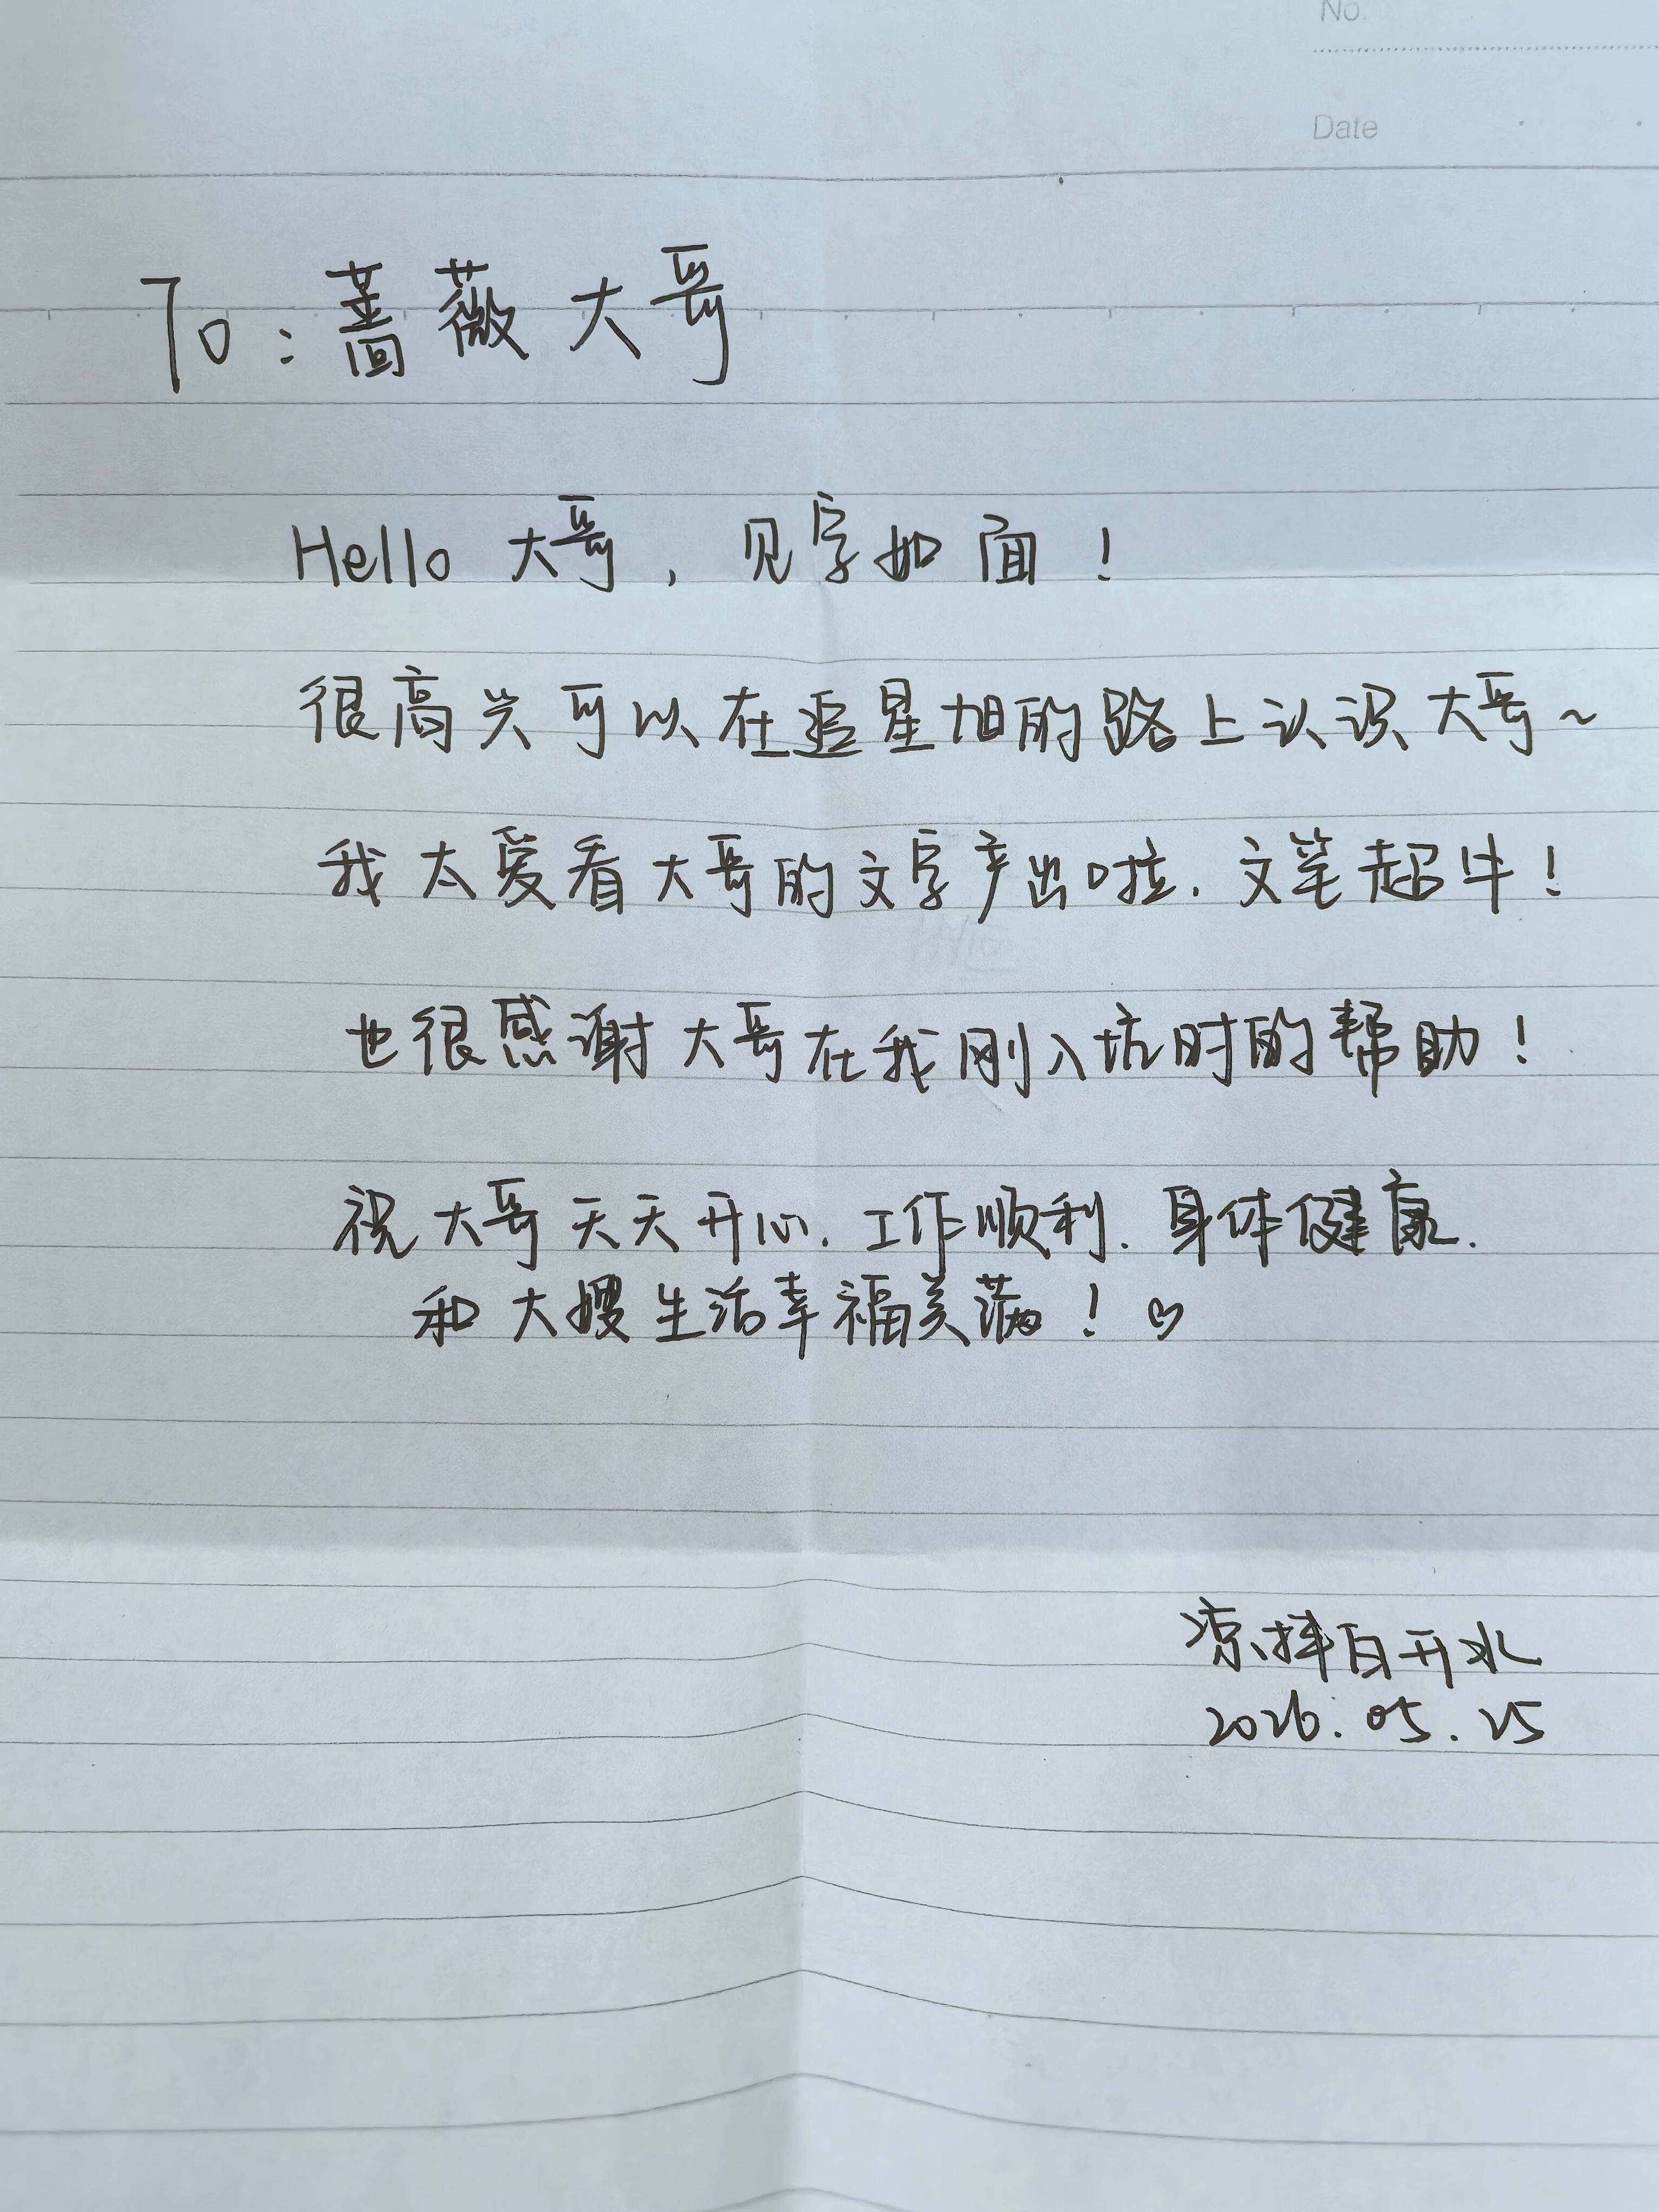 No.
Date
To：蔷薇大哥
Hello 大哥，见字如面！
很高兴可以在追星旭的路上认识大哥～
我太爱看大哥的文字产出啦，文笔超牛！
也很感谢大哥在我刚入坑时的帮助！
祝大哥天天开心，工作顺利，身体健康，
和大嫂生活幸福美满！♡
凉拌白开水
2026.05.25